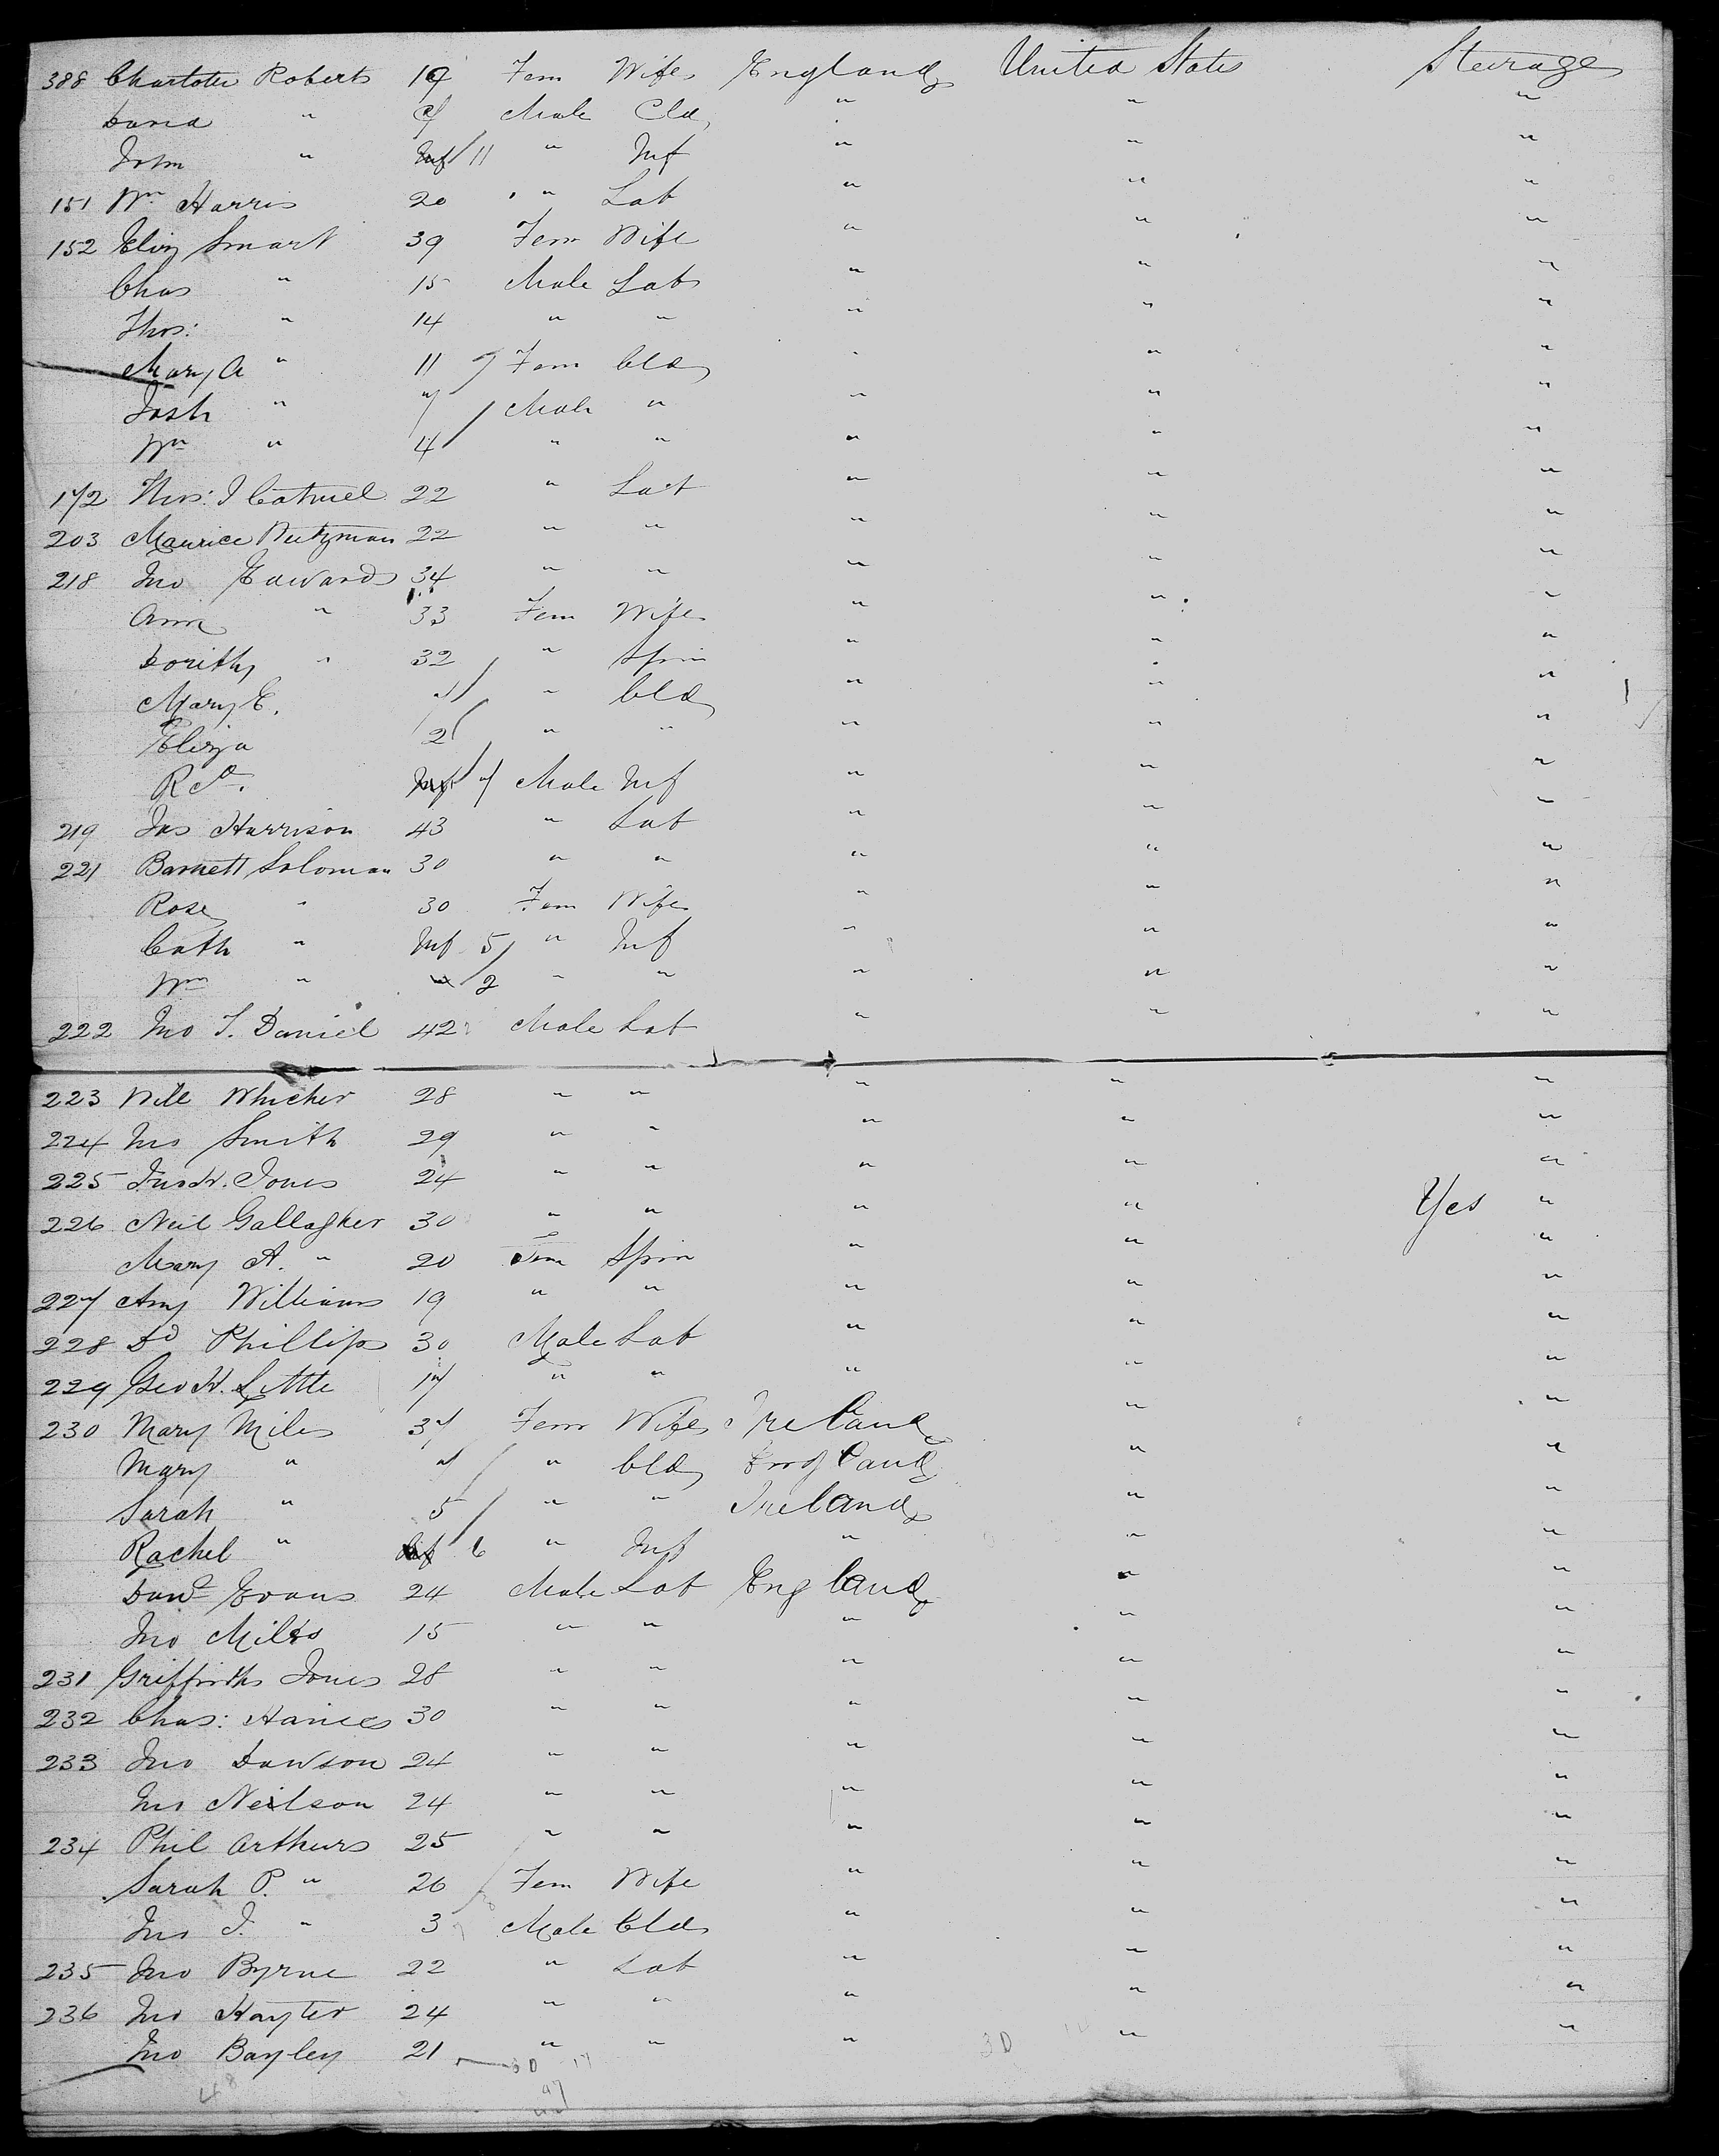 388 Charlotte Roberts 19 Fem Wife England United States Steerage
David " Male Cld " " "
John " Inf 11 " Inf " " "
151 Wm Harris 20 " Lab " " "
152 Eliz Smart 39 Fem Wife " " "
Chas " 15 Male Lab " " "
Thos: " 14 " " " " "
Mary A " 11 Fem Cld " " "
Josh " 7 Male " " " "
Wm " 4 " " " " "
172 Thos: J 22 " Lab " " "
203 Maurice 22 " " " " "
218 Jno Edwards 34 " " " " "
Ann " 33 Fem Wife " " "
Dorithy " 32 " Spin " " "
Mary E. " Cld " " "
Eliza 2 " " " " "
Rd. Inf 7 Male Inf " " "
219 Jas Harrison 43 " Lab " " "
221 Barnett Soloman 30 " " " " "
Rose " 30 Fem Wife " " "
Cath " Inf 5 " Inf " " "
Wm " " 2 " " " " "
222 Jno T. Daniel 42 Male Lab " " "
223 Will Whicher 28 " " " " "
224 Jno Smith 29 " " " " "
225 Jones 24 " " " " "
226 Neil Gallagher 30 " " " " Yes "
Mary A. " 20 Fem Spin " " "
227 Amy Williams 19 " " " " "
228 Dd Phillips 30 Male Lab " " "
229 Geo H. Little 17 " " " " "
230 Mary Miles 37 Fem Wife Ireland " "
Mary " " Cld England " "
Sarah " 5 " " Ireland " "
Rachel " Inf 6 " Inf " " "
Davd Evans 24 Male Lab England " "
Jno Miles 15 " " " " "
231 Griffiths Jones 28 " " " " "
232 Chas: 30 " " " " "
233 Jno Dawson 24 " " " " "
Jno Neilson 24 " " " " "
234 Phil Arthurs 25 " " " " "
Sarah P. " 26 Fem Wife " " "
Jno J. " 3 Male Cld " " "
235 Jno Byrne 22 " Lab " " "
236 Jno Hayter 24 " " " " "
Jno Bayley 21 " " " " "
3D
48